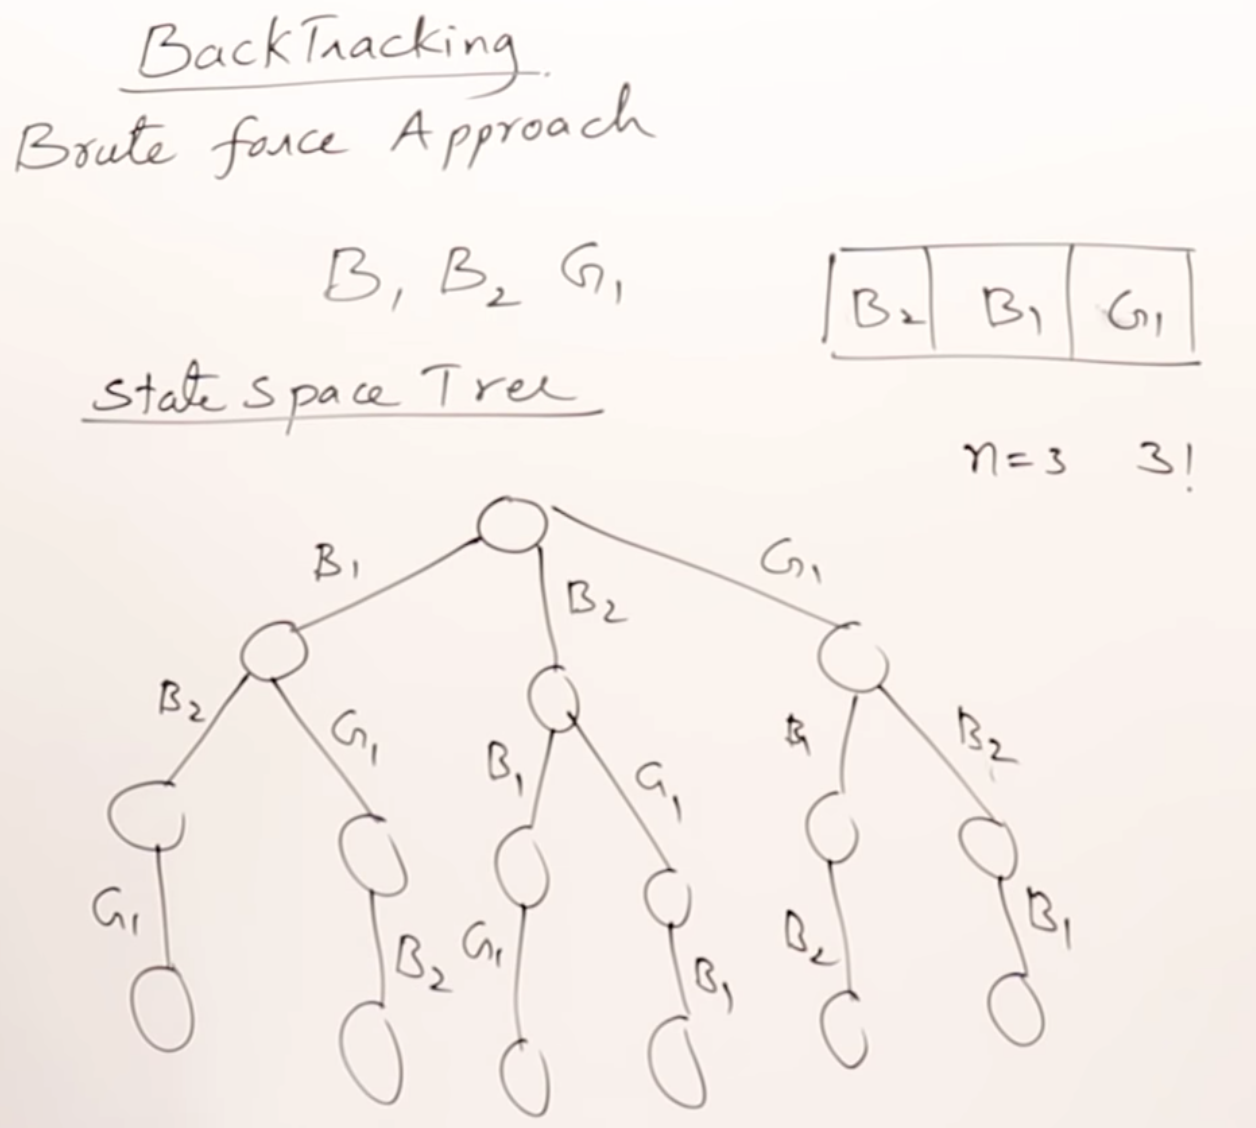 BackTracking
Brute force Approach
B₁ B₂ G₁
B₂ B₁ G₁
State Space Tree
n=3 3!
B₁ B₂ G₁
B₂ G₁ B₁ G₁ B₁ B₂
G₁ B₂ G₁ B₁ B₂ B₁